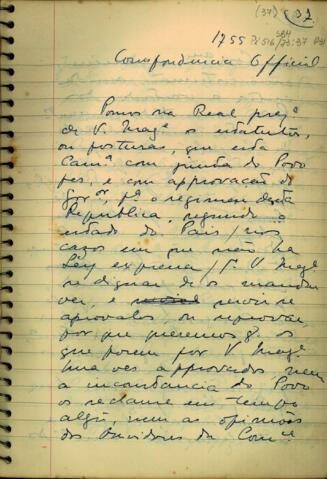 (37) 37
1755
Correspondencia Official
Pomos na Real prezª
de V. Magᵉ os estatutos,
ou posturas, que esta
Camª com junta do Povo
fes, e com approvação do
Govᵒʳ, pª o regimen desta
Republica, segundo o
estado do Pais / nos
cazos em que não ha
Ley expressa / Pª V. Magᵉ
se dignar de os mandar
ver, e revir e
aproval-os ou reprovar,
por que queremos q. os
que forem por V. Magᵉ
hua ves approvados nem
a inconstancia do Povo
os reclame em tempo
algũ, nem as opiniões
dos Ouvidores da Comᶜᵃ